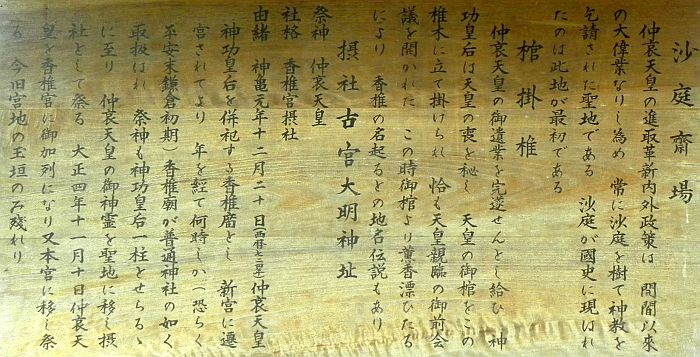 沙庭齋場
仲哀天皇の進取革新内外政策は 開闢以來
の大偉業なりし為め 常に沙庭を樹て神教を
乞請された聖地である 沙庭が國史に現はれ
たのは此地が最初である
棺掛椎
仲哀天皇の御遺業を完遂せんとし給ひ 神
功皇后は天皇の喪を秘し 天皇の御棺をこの
椎木に立て掛けられ 恰も天皇親臨の御前会
議を開かれた この時御棺より薫香漂ひたる
により 香椎の名起るとの地名伝説もあり
摂社古宮大明神址
祭神 仲哀天皇
社格 香椎宮摂社
由緒 神亀元年十二月二十日(西暦七二四)仲哀天皇
神功皇后を併祀する香椎廟とし 新宮に遷
宮されてより 年を経て何時しか(恐らく
平安末鎌倉初期)香椎廟が普通神社の如く
取扱はれ 祭神も神功皇后一柱とせらるゝ
に至り 仲哀天皇の御神霊を聖地に移し摂
社として祭る 大正四年十一月十日仲哀天
皇を香椎宮に御加列になり又本宮に移し祭
る 今旧宮地の玉垣のみ残れり